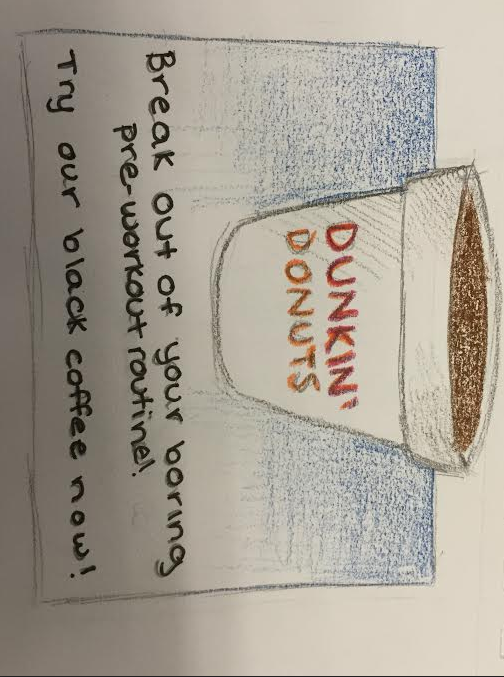 DUNKIN'
DONUTS
Break out of your boring
pre-workout routine!
Try our black coffee now!